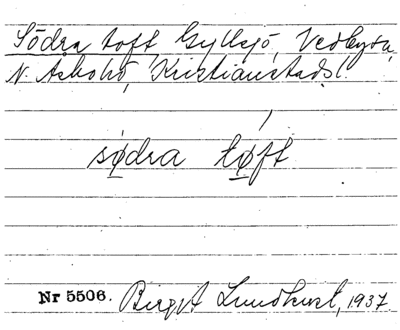 Södra toft, Gyllsjö, Vedbysn,
N. Åsbohd, Kristianstadsl.
sødra tøft
Nr 5506. Birgit Lundkvist, 1937